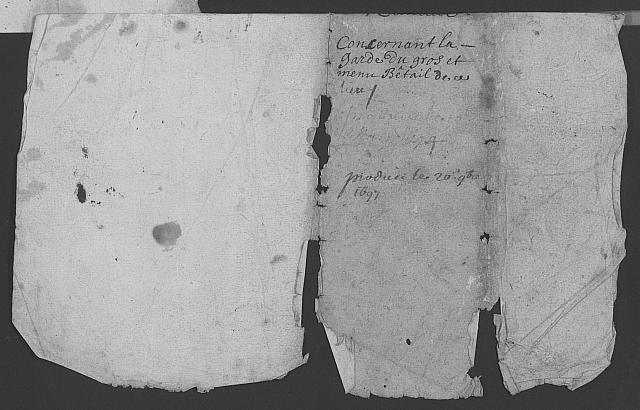 Concernant la –
garde du gros et
menu Bêtail de ce
lieu
produit le 20.e 9bre
1697